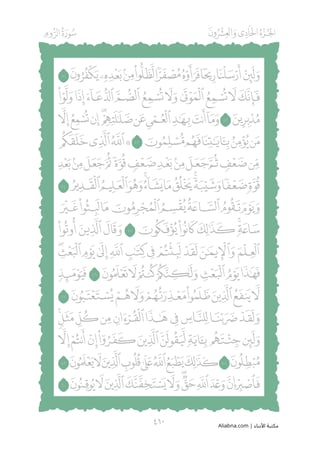 الجُزْءُ الحَادِي وَالعِشْرُونَ سُورَةُ الرُّومِ
وَلَئِنْ أَرْسَلْنَا رِيحًا فَرَأَوْهُ مُصْفَرًّا لَّظَلُّوا۟ مِنۢ بَعْدِهِۦ يَكْفُرُونَ
فَإِنَّكَ لَا تُسْمِعُ ٱلْمَوْتَىٰ وَلَا تُسْمِعُ ٱلصُّمَّ ٱلدُّعَآءَ إِذَا وَلَّوْا۟
مُدْبِرِينَ وَمَآ أَنتَ بِهَٰدِ ٱلْعُمْىِ عَن ضَلَٰلَتِهِمْ إِن تُسْمِعُ إِلَّا
مَن يُؤْمِنُ بِـَٔايَٰتِنَا فَهُم مُّسْلِمُونَ ٱللَّهُ ٱلَّذِى خَلَقَكُم
مِّن ضَعْفٍ ثُمَّ جَعَلَ مِنۢ بَعْدِ ضَعْفٍ قُوَّةً ثُمَّ جَعَلَ مِنۢ بَعْدِ
قُوَّةٍ ضَعْفًا وَشَيْبَةً يَخْلُقُ مَا يَشَآءُ وَهُوَ ٱلْعَلِيمُ ٱلْقَدِيرُ
وَيَوْمَ تَقُومُ ٱلسَّاعَةُ يُقْسِمُ ٱلْمُجْرِمُونَ مَا لَبِثُوا۟ غَيْرَ
سَاعَةٍ كَذَٰلِكَ كَانُوا۟ يُؤْفَكُونَ وَقَالَ ٱلَّذِينَ أُوتُوا۟
ٱلْعِلْمَ وَٱلْإِيمَٰنَ لَقَدْ لَبِثْتُمْ فِى كِتَٰبِ ٱللَّهِ إِلَىٰ يَوْمِ ٱلْبَعْثِ
فَهَٰذَا يَوْمُ ٱلْبَعْثِ وَلَٰكِنَّكُمْ كُنتُمْ لَا تَعْلَمُونَ فَيَوْمَئِذٍ
لَّا يَنفَعُ ٱلَّذِينَ ظَلَمُوا۟ مَعْذِرَتُهُمْ وَلَا هُمْ يُسْتَعْتَبُونَ
وَلَقَدْ ضَرَبْنَا لِلنَّاسِ فِى هَٰذَا ٱلْقُرْءَانِ مِن كُلِّ مَثَلٍ
وَلَئِن جِئْتَهُم بِـَٔايَةٍ لَّيَقُولَنَّ ٱلَّذِينَ كَفَرُوٓا۟ إِنْ أَنتُمْ إِلَّا
مُبْطِلُونَ كَذَٰلِكَ يَطْبَعُ ٱللَّهُ عَلَىٰ قُلُوبِ ٱلَّذِينَ لَا يَعْلَمُونَ
فَٱصْبِرْ إِنَّ وَعْدَ ٱللَّهِ حَقٌّ وَلَا يَسْتَخِفَّنَّكَ ٱلَّذِينَ لَا يُوقِنُونَ
٤١٠
مكتبة الأبناء | Aliabna.com